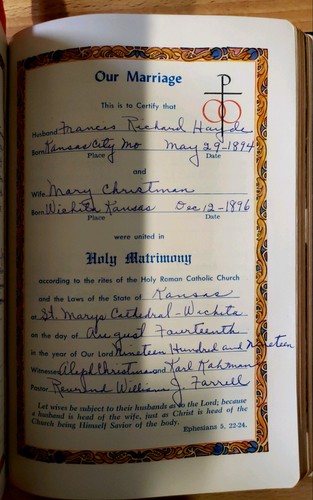 Our Marriage
This is to Certify that
Husband Francis Richard Hayde
Born Kansas City Mo May 29-1894
Place Date
and
Wife Mary Christman
Born Wichita Kansas Dec 12-1896
Place Date
were united in
Holy Matrimony
according to the rites of the Holy Roman Catholic Church
and the Laws of the State of Kansas
at St. Marys Cathedral-Wichita
on the day of August Fourteenth
in the year of Our Lord Nineteen Hundred and Nineteen
Witnesses and Karl
Pastor Reverend William J. Farrell
Let wives be subject to their husbands as to the Lord; because
a husband is head of the wife, just as Christ is head of the
Church being Himself Savior of the body.
Ephesians 5, 22-24.